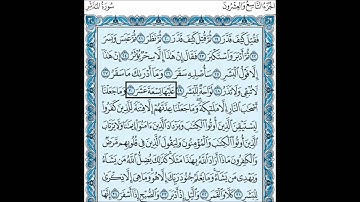 سُورَةُ المُدَّثِّر
الجُزْءُ التَّاسِعُ وَالعِشْرُونَ
فَقُتِلَ كَيْفَ قَدَّرَ ١٩ ثُمَّ قُتِلَ كَيْفَ قَدَّرَ ٢٠ ثُمَّ نَظَرَ ٢١ ثُمَّ عَبَسَ وَبَسَرَ
٢٢ ثُمَّ أَدْبَرَ وَٱسْتَكْبَرَ ٢٣ فَقَالَ إِنْ هَٰذَآ إِلَّا سِحْرٌ يُؤْثَرُ ٢٤ إِنْ هَٰذَآ
إِلَّا قَوْلُ ٱلْبَشَرِ ٢٥ سَأُصْلِيهِ سَقَرَ ٢٦ وَمَآ أَدْرَىٰكَ مَا سَقَرُ ٢٧
لَا تُبْقِى وَلَا تَذَرُ ٢٨ لَوَّاحَةٌ لِّلْبَشَرِ ٢٩ عَلَيْهَا تِسْعَةَ عَشَرَ ٣٠ وَمَا جَعَلْنَآ
أَصْحَٰبَ ٱلنَّارِ إِلَّا مَلَٰٓئِكَةً وَمَا جَعَلْنَا عِدَّتَهُمْ إِلَّا فِتْنَةً لِّلَّذِينَ كَفَرُوا۟
لِيَسْتَيْقِنَ ٱلَّذِينَ أُوتُوا۟ ٱلْكِتَٰبَ وَيَزْدَادَ ٱلَّذِينَ ءَامَنُوٓا۟ إِيمَٰنًا وَلَا يَرْتَابَ
ٱلَّذِينَ أُوتُوا۟ ٱلْكِتَٰبَ وَٱلْمُؤْمِنُونَ وَلِيَقُولَ ٱلَّذِينَ فِى قُلُوبِهِم مَّرَضٌ
وَٱلْكَٰفِرُونَ مَاذَآ أَرَادَ ٱللَّهُ بِهَٰذَا مَثَلًا كَذَٰلِكَ يُضِلُّ ٱللَّهُ مَن يَشَآءُ
وَيَهْدِى مَن يَشَآءُ وَمَا يَعْلَمُ جُنُودَ رَبِّكَ إِلَّا هُوَ وَمَا هِىَ إِلَّا ذِكْرَىٰ
لِلْبَشَرِ ٣١ كَلَّا وَٱلْقَمَرِ ٣٢ وَٱلَّيْلِ إِذْ أَدْبَرَ ٣٣ وَٱلصُّبْحِ إِذَآ أَسْفَرَ ٣٤